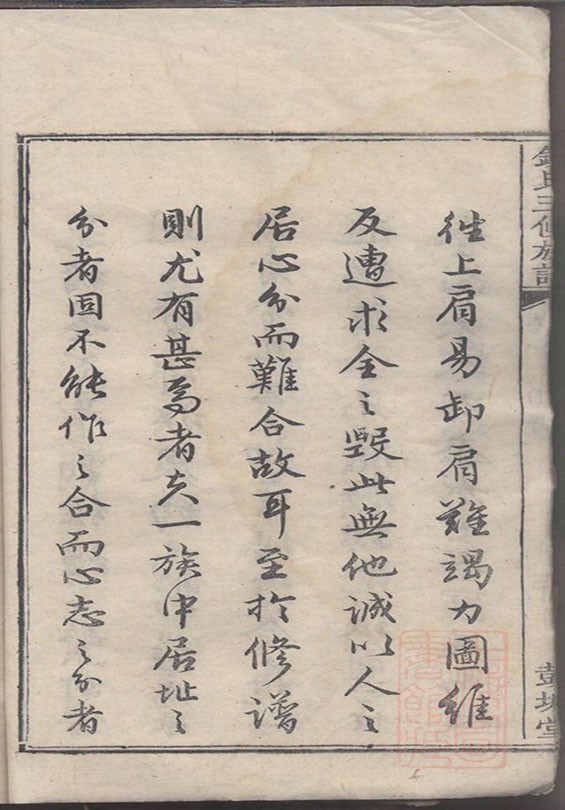 鍾氏三修族譜
彭城堂
往上肩易卸肩難竭力圖維
反遭求全之毀此無他誠以人之
居心分而難合故耳至於修譜
則尤有甚焉者夫一族中居址之
分者固不能作之合而心志之分者